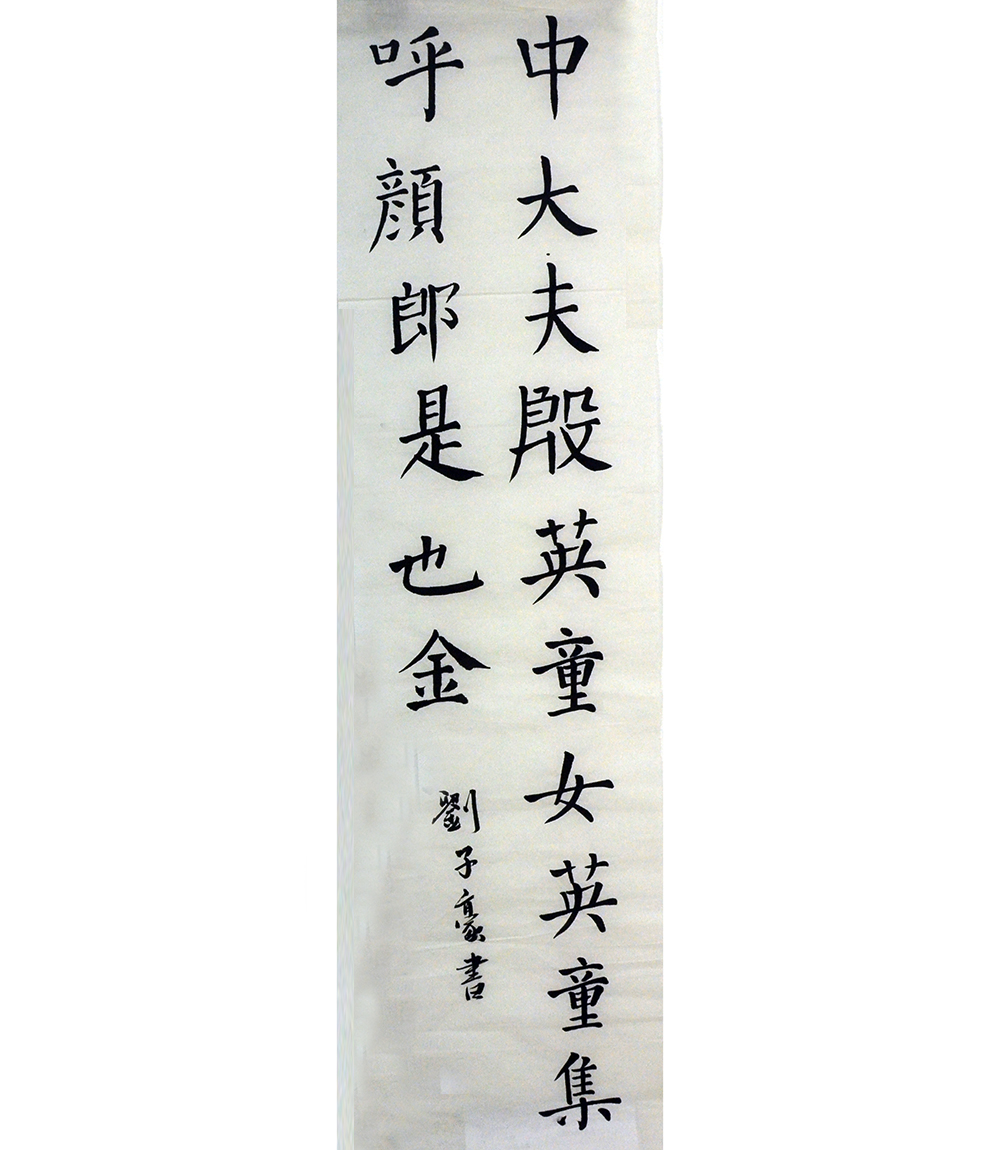 中大夫殷英童女英童集
呼顔郎是也金
劉子豪書